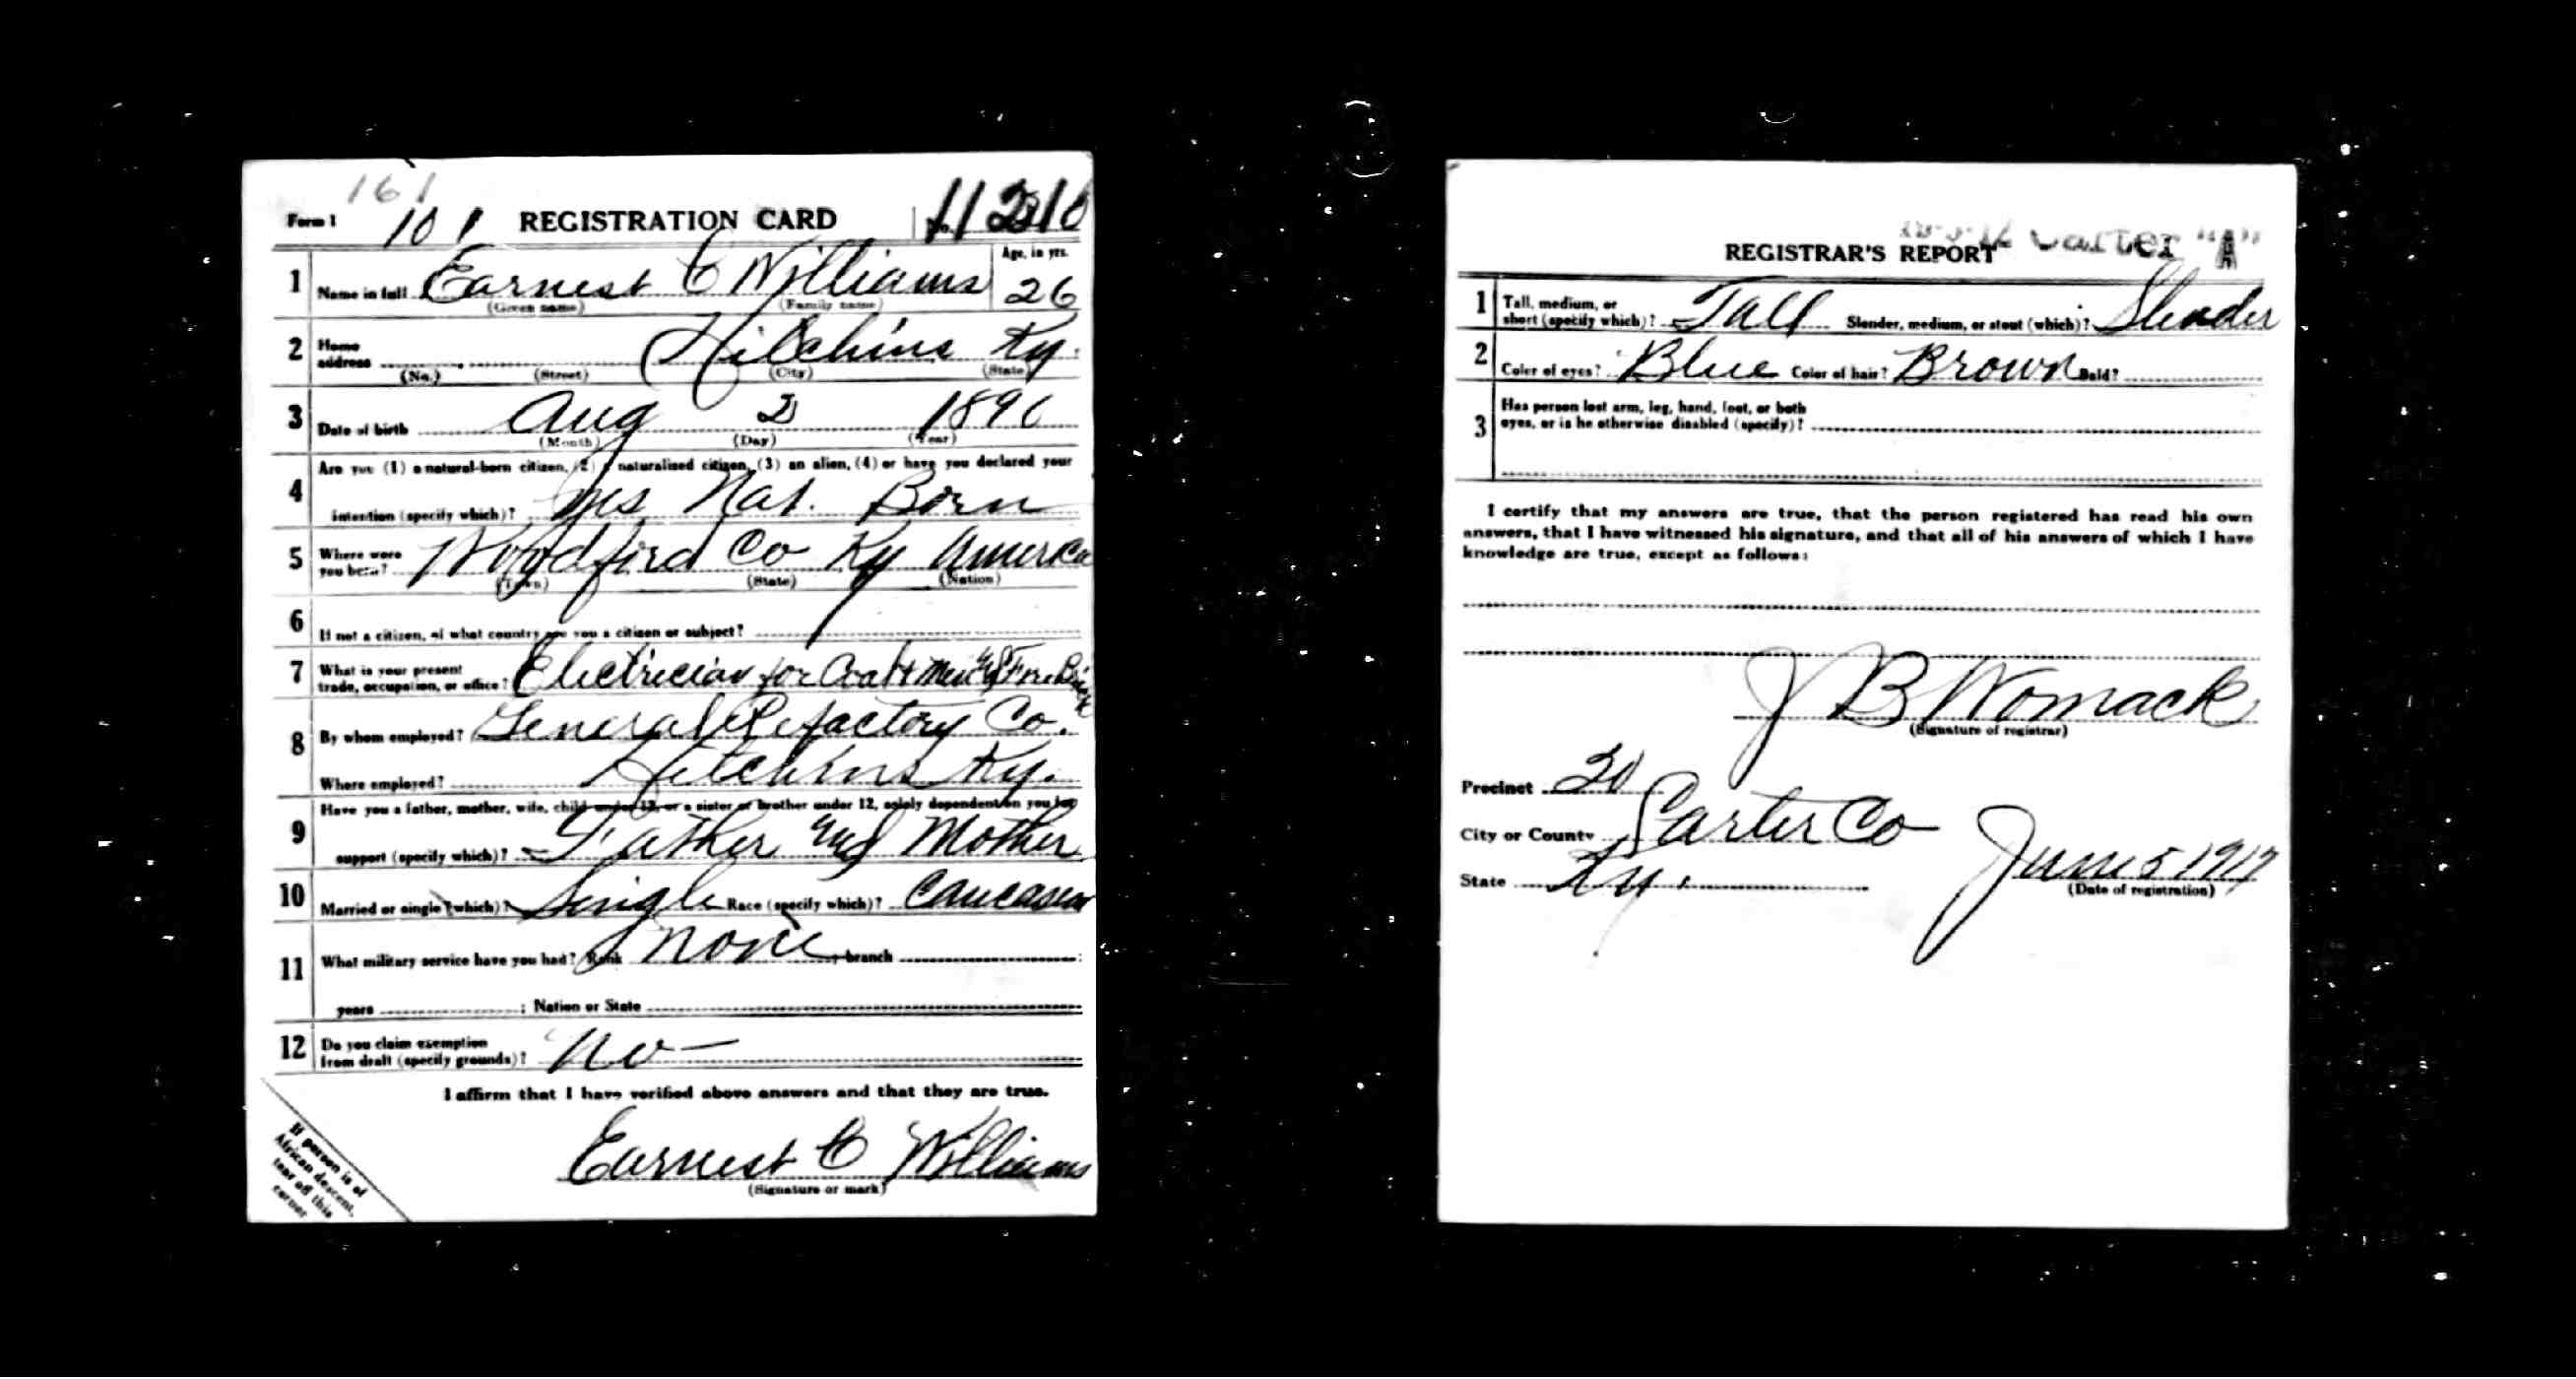 161
Form 1 101 REGISTRATION CARD
1 Name in full Earnest C Williams Age, in yrs. 26
(Given name) (Family name)
2 Home address Hitchins Ky.
(No.) (Street) (City) (State)
3 Date of birth Aug 2 1890
(Month) (Day) (Year)
4 Are you (1) a natural-born citizen, (2) a naturalized citizen, (3) an alien, (4) or have you declared your
intention (specify which)? yes Nat. Born
5 Where were you born? Woodford Co Ky America
(Town) (State) (Nation)
6 If not a citizen, of what country are you a citizen or subject?
7 What is your present trade, occupation, or office? Electrician for
8 By whom employed? General Refactory Co.
Where employed? Hitchins Ky.
9 Have you a father, mother, wife, child under 12, or a sister or brother under 12, solely dependent on you for
support (specify which)? Father and Mother
10 Married or single (which)? Single Race (specify which)? Caucasian
11 What military service have you had? Rank none ; branch
years ; Nation or State
12 Do you claim exemption from draft (specify grounds)? No
I affirm that I have verified above answers and that they are true.
Earnest C Williams
(Signature or mark)
If person is of
African descent,
tear off this
corner
Carter "A"
REGISTRAR'S REPORT
1 Tall, medium, or short (specify which)? Tall Slender, medium, or stout (which)? Slender
2 Color of eyes? Blue Color of hair? Brown Bald?
3 Has person lost arm, leg, hand, foot, or both
eyes, or is he otherwise disabled (specify)?
I certify that my answers are true, that the person registered has read his own
answers, that I have witnessed his signature, and that all of his answers of which I have
knowledge are true, except as follows:
J B Womack
(Signature of registrar)
Precinct 20
City or County Carter Co
State Ky. June 5 1917
(Date of registration)